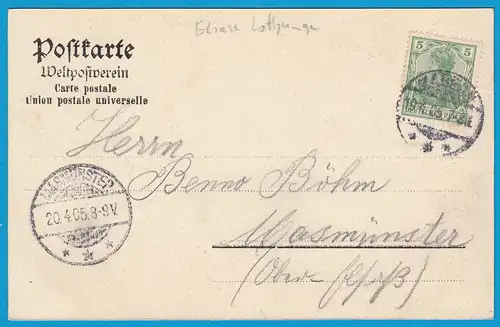 Elsass Lothringen
Postkarte
Weltpostverein
Carte postale
Union postale universelle
5 5
Herrn
Benno Böhm
Masmünster
(Ober-Elsaß)
MASMÜNSTER
20.4.05.8-9V.